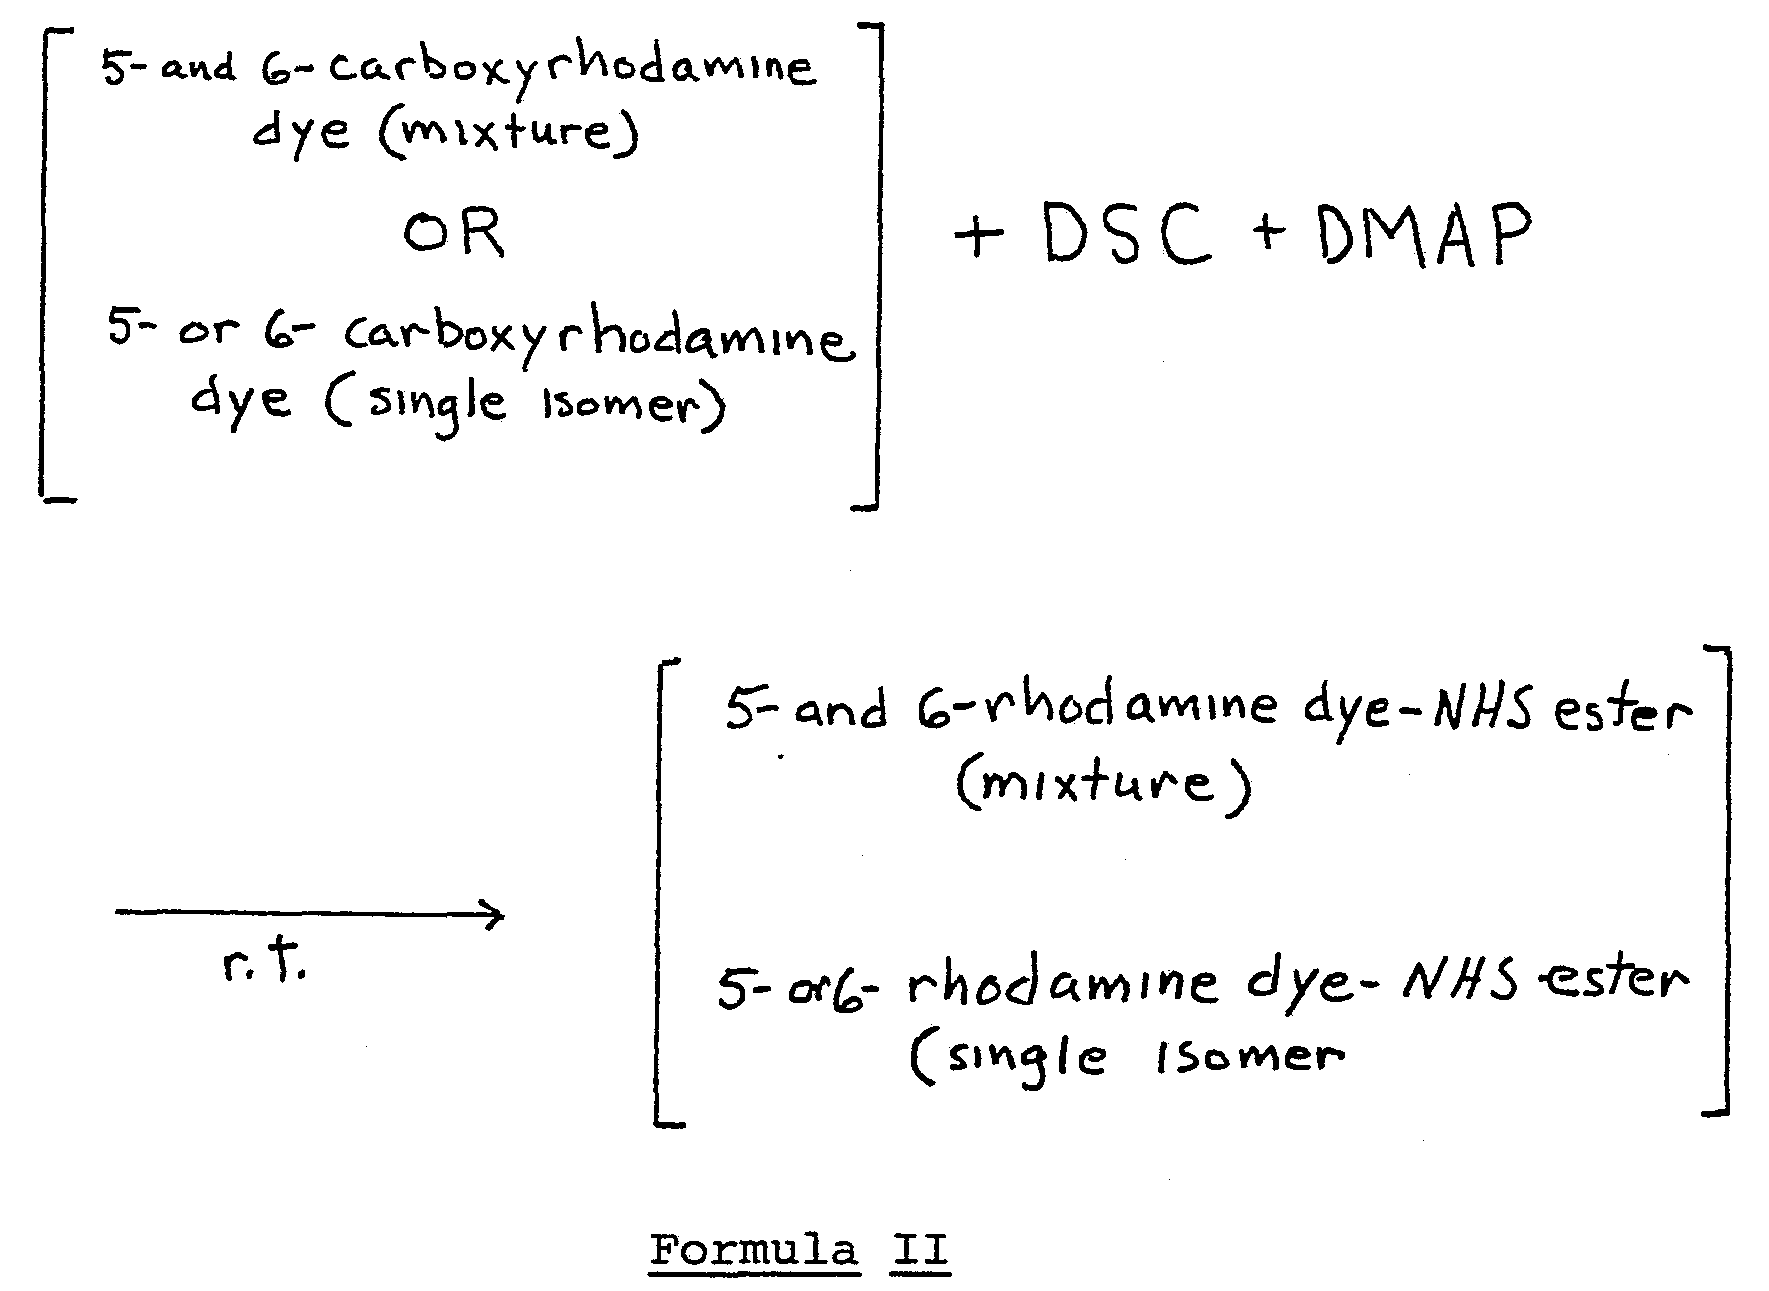 5- and 6- carboxyrhodamine
dye (mixture)
OR
5- or 6- carboxyrhodamine
dye (single isomer)
+ DSC + DMAP
5- and 6-rhodamine dye-NHS ester
(mixture)
r.t.
5- or 6- rhodamine dye- NHS ester
(single isomer
Formula II